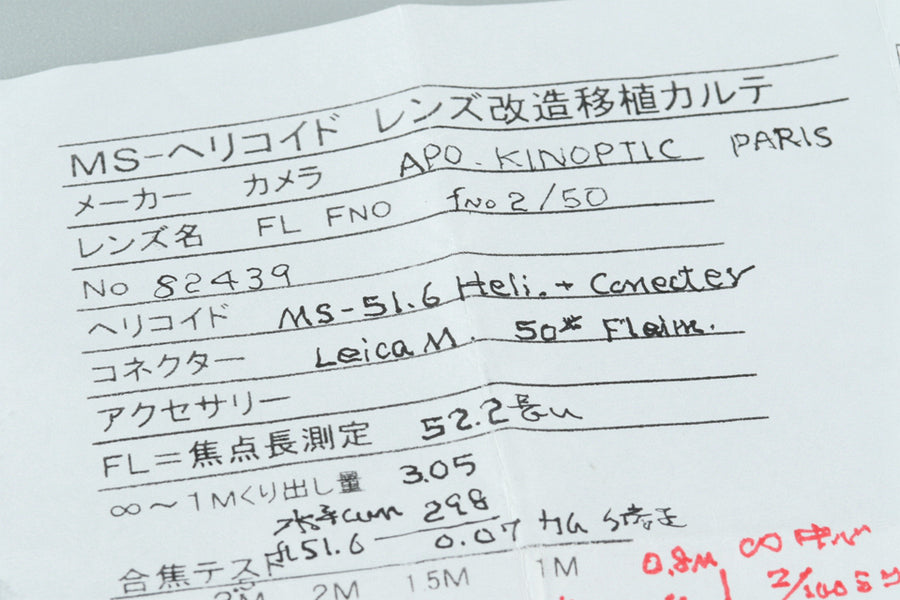 MS-ヘリコイド レンズ改造移植カルテ
メーカー カメラ APO. KINOPTIC PARIS
レンズ名 FL FNO fNo 2/50
No 82439
ヘリコイド MS-51.6 Heli. + Conecter
コネクター Leica M. 50
アクセサリー
FL=焦点長測定 52.2 長い
∞～1Mくり出し量 3.05
298
51.6 0.07
合焦テスト 2M 1.5M 1M
0.8M ∞
2/100